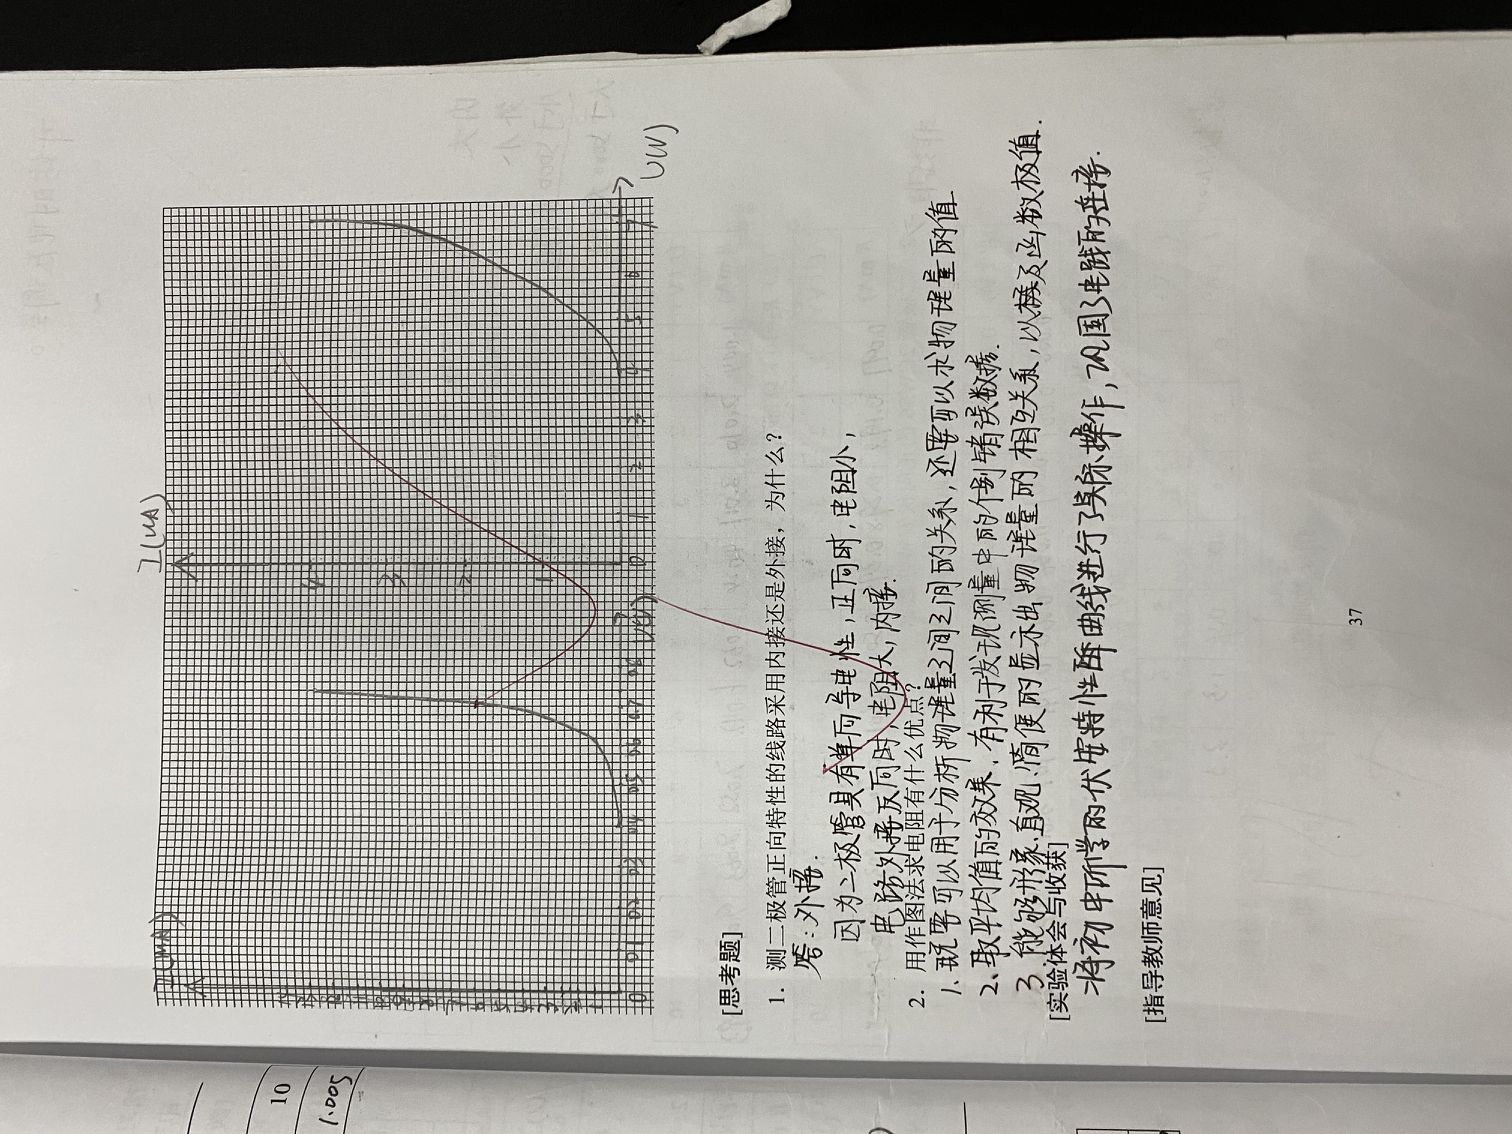 10
1.005
I(MA)
I(UA)
4
3
2
1
0 0.1 0.2 0.3 0.4 0.5 0.6 0.7 0.8 U(V)
0 1 2 3 4 5 6 7
U(V)
[思考题]
1. 测二极管正向特性的线路采用内接还是外接，为什么？
答：外接.
因为二极管具有单向导电性，正向时，电阻小，
电路外接反向时，电阻大，内接.
2. 用作图法求电阻有什么优点？
1、既要可以用于分析物理量之间之间的关系，还要可以求物理量的值
2、取平均值的效果、有利于发现测量中的个别错误数据.
3.能够形象、直观、简便的显示出物理量的相互关系，以及函数极值.
[实验体会与收获]
将初中所学的伏安特性曲线进行了实际操作，巩固了电路的连接.
[指导教师意见]
37